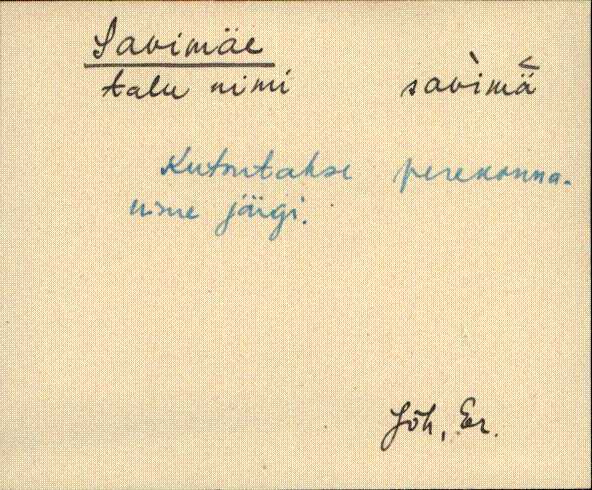 Savimäe
talu nimi savìmä̆
Kutsutakse perekonna-
nime järgi.
Jõh, Er.